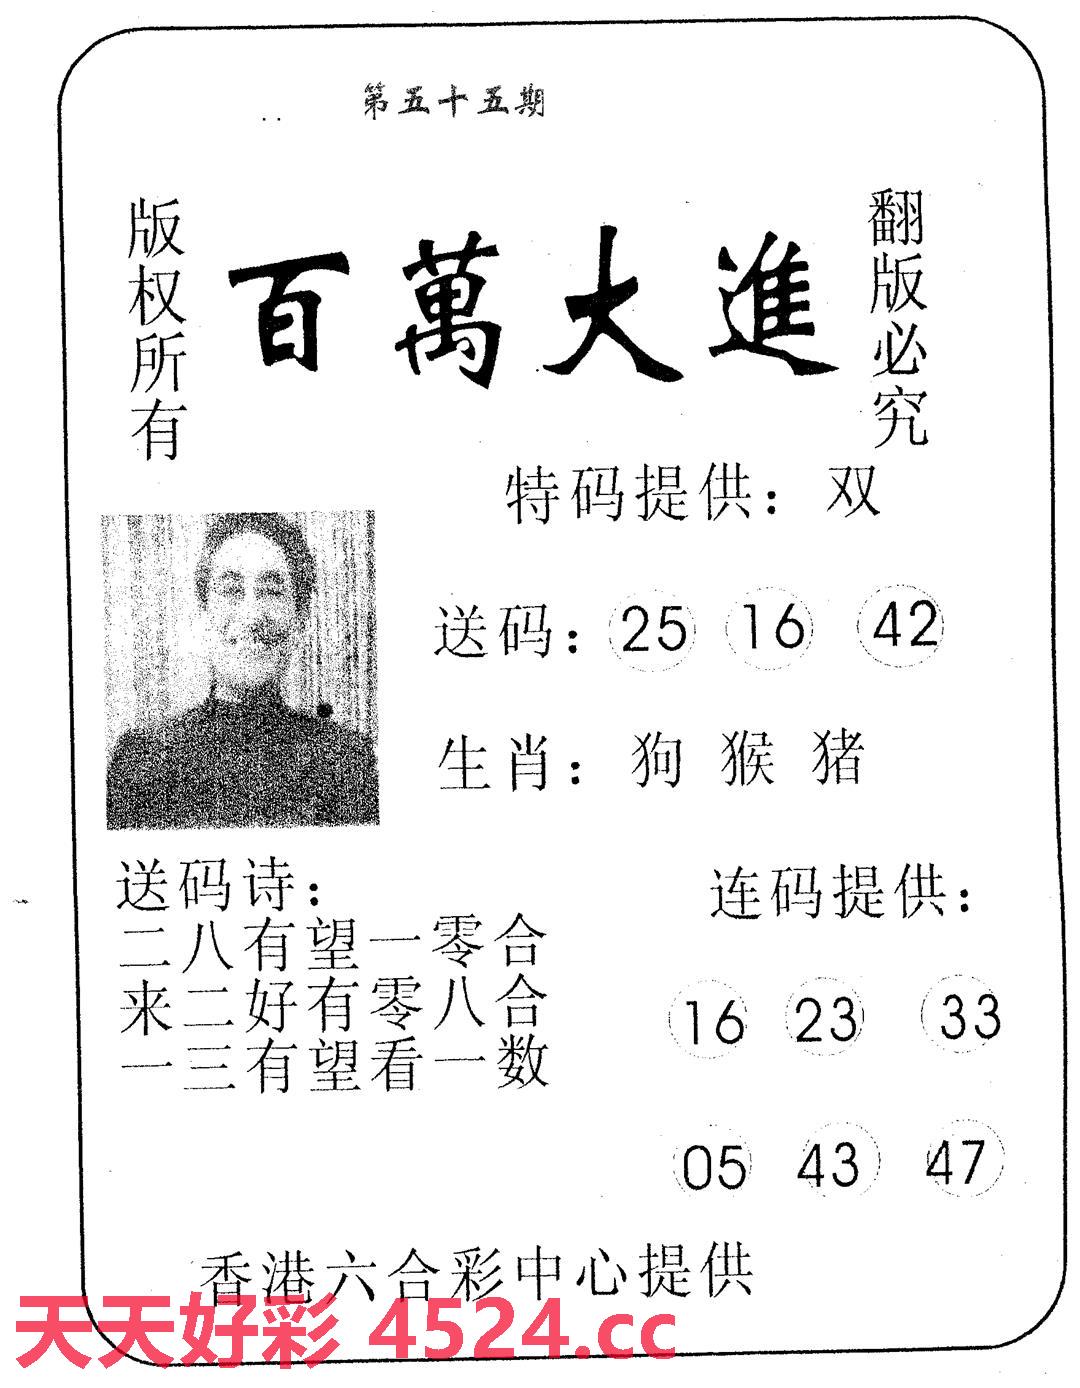 第五十五期
版权所有
百萬大進
翻版必究
特码提供：双
送码：25 16 42
生肖：狗 猴 猪
送码诗：
二八有望一零合
来二好有零八合
一三有望看一数
连码提供：
16 23 33
05 43 47
香港六合彩中心提供
天天好彩 4524.cc